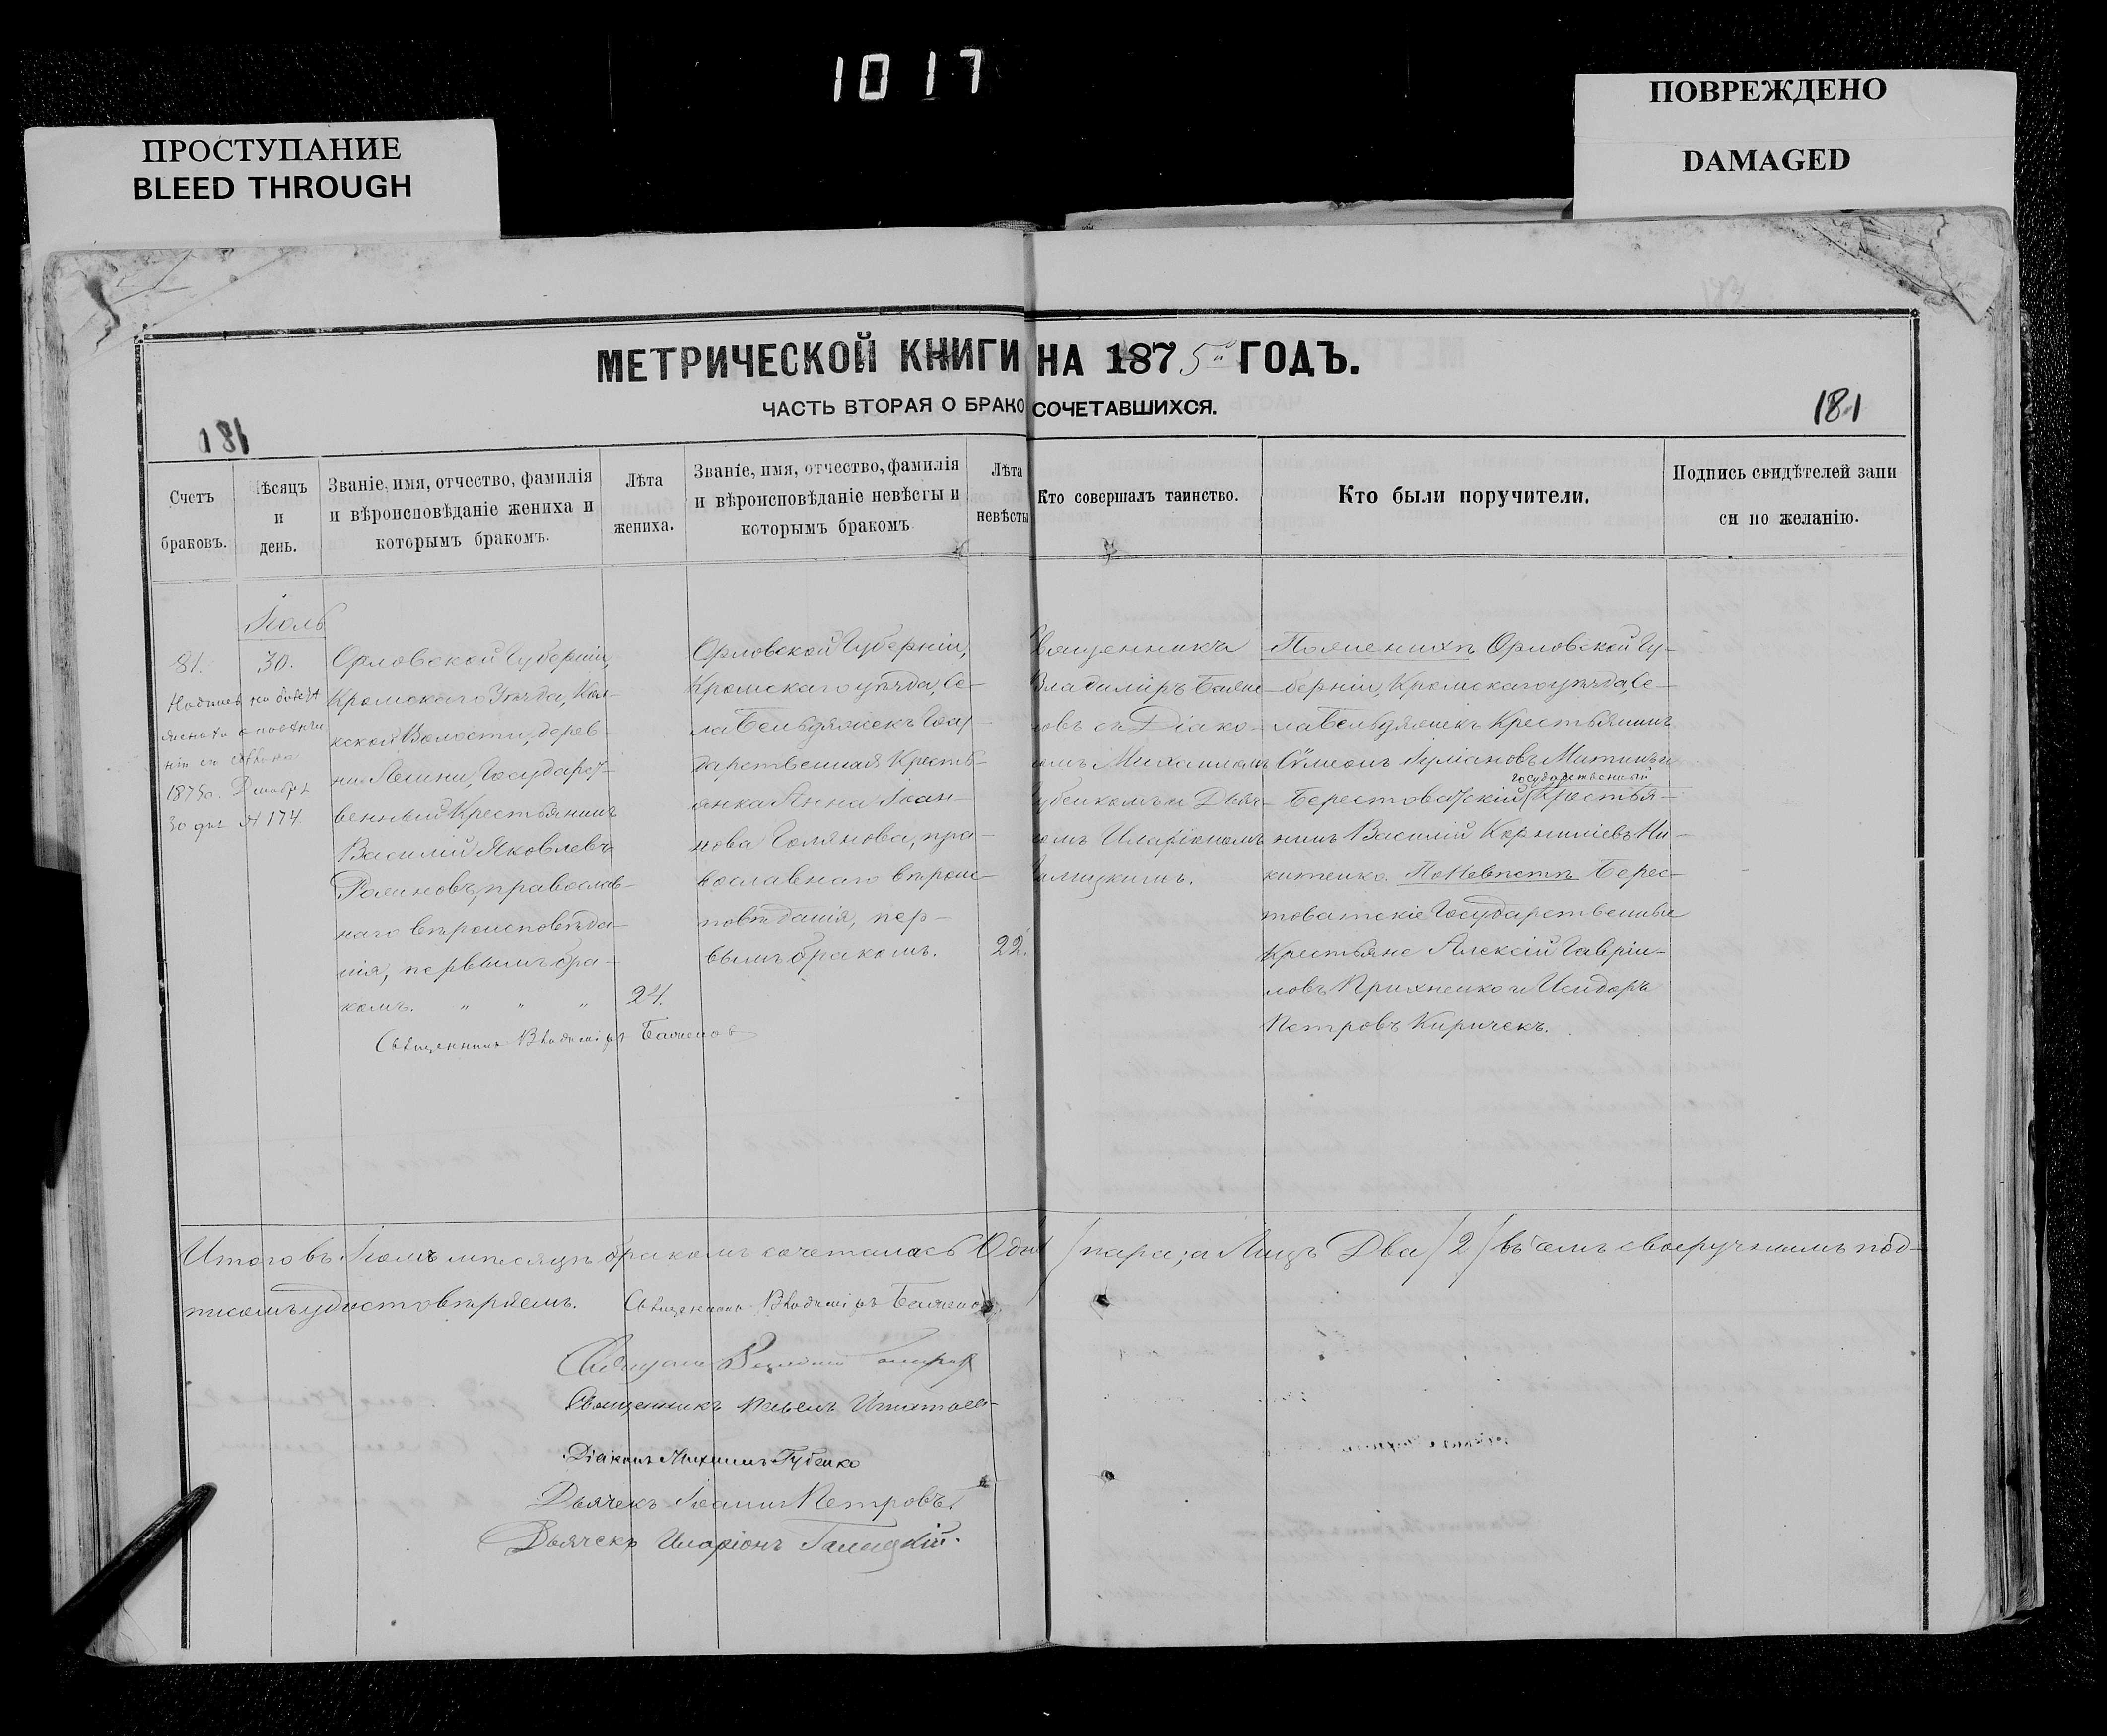 1017
ПРОСТУПАНИЕ
BLEED THROUGH
ПОВРЕЖДЕНО
DAMAGED
МЕТРИЧЕСКОЙ КНИГИ НА 1875й ГОДЪ.
ЧАСТЬ ВТОРАЯ О БРАКОСОЧЕТАВШИХСЯ.
181
181
Счетъ
браковъ.
Мѣсяцъ
и
день.
Званіе, имя, отчество, фамилія
и вѣроисповѣданіе жениха и
которымъ бракомъ.
Лѣта
жениха.
Званіе, имя, отчество, фамилія
и вѣроисповѣданіе невѣсты и
которымъ бракомъ
Лѣта
невѣсты
Кто совершалъ таинство.
Кто были поручители.
Подпись свидѣтелей запи
си по желанію.
Іюль
81.
30.
1875о. Декабря
30 дня № 174.
Орловской Губерніи,
Кромскаго Уѣзда,
Волости, дерев-
ни Государст-
венный Крестьянинъ
Василій Яковлевъ
православ-
наго вѣроисповѣда-
нія, первымъ бра-
комъ. " " "
24.
Священникъ Владиміръ Баженовъ
Орловской Губерніи,
Кромскаго уѣзда, Се-
ла Бельдяжекъ Госу-
дарственная Кресть-
янка Анна Іоан-
нова Голянова, пра-
вославнаго вѣроис-
повѣданія, пер-
вымъ бракомъ.
22.
Священникъ
Владиміръ Баже-
новъ съ Діако-
номъ Михаиломъ
Губенкомъ и Дьяч-
комъ Иларіономъ
Галицкимъ.
По женихѣ Орловской Гу-
берніи, Кромскаго уѣзда, Се-
ла Бельдяжекъ Крестьянинъ
Сѵмеонъ Митинъ и
государственный
Берестоватскій Крестья-
нинъ Василій Корниліевъ Ни-
китенко. По Невѣстѣ Берес-
товатскіе Государственные
Крестьяне Алексій Гаврiи-
ловъ Прихненко и Исидоръ
Петровъ Киричекъ.
Итого въ Іюлѣ мѣсяцѣ бракомъ сочеталась Одна / пара; а Лицъ Два /2/ въ чемъ своеручнымъ под-
писомъ удостовѣряемъ. Священникъ Владиміръ Баженовъ
Священникъ
Священникъ Павелъ
Діаконъ Михаилъ Губенко
Дьячекъ Іоаннъ Петровъ.
Дьячекъ Иларіонъ Галицкій.